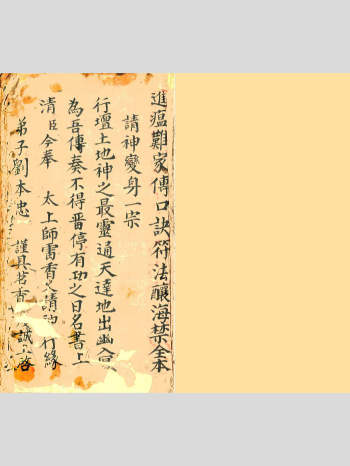 進瘟難家傳口訣符法釀海禁全本
請神變身一宗
行壇土地神之最靈通天達地出幽入冥
為吾傳奏不得畱停有功之日名書上
清臣今奉 太上師雷香火請 行緣
弟子劉本忠 謹具茗香 誠 啓